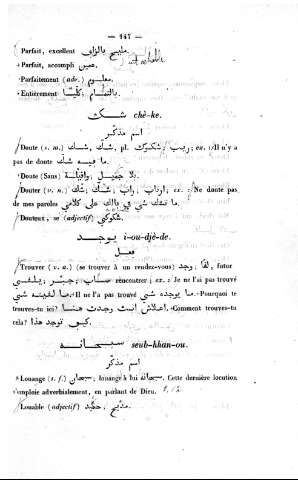 — 147 —
Parfait, excellent مليح بالزاف.
Parfait, accompli
Parfaitement (adv.) معلوم.
Entièrement بالتمام; كليا.
شك chê-ke.
اسم مذكر
Doute (s. m.) شك, شك, pl. شكوك; ريب; ex.: Il n'y a
pas de doute ما فيه شك.
Doute (Sans) بلا
Douter (v. n.) شك; راب, ارتاب, ex.: Ne doute pas
de mes paroles ما تشك شي في كلامي
Douteux, se (adjectif) شكوكي.
يوجد i-ou-djê-de.
فعل
Trouver (v. a.) (se trouver à un rendez-vous) وجد; لقا, futur
يلقى; جبر; صاب rencontrer; ex.: Je ne l'ai pas trouvé
ما لقيته شي. Il ne l'a pas trouvé ما يوجده شي. Pourquoi te
trouves-tu ici? اعلاش انت وجدت هنا? Comment trouves-tu
cela? كيف توجد هذا.
سبحانه seub-khan-ou.
اسم مذكر
Louange (s. f.) سبحان; louange à lui سبحانه. Cette dernière locution
s'emploie adverbialement, en parlant de Dieu.
Louable (adjectif)